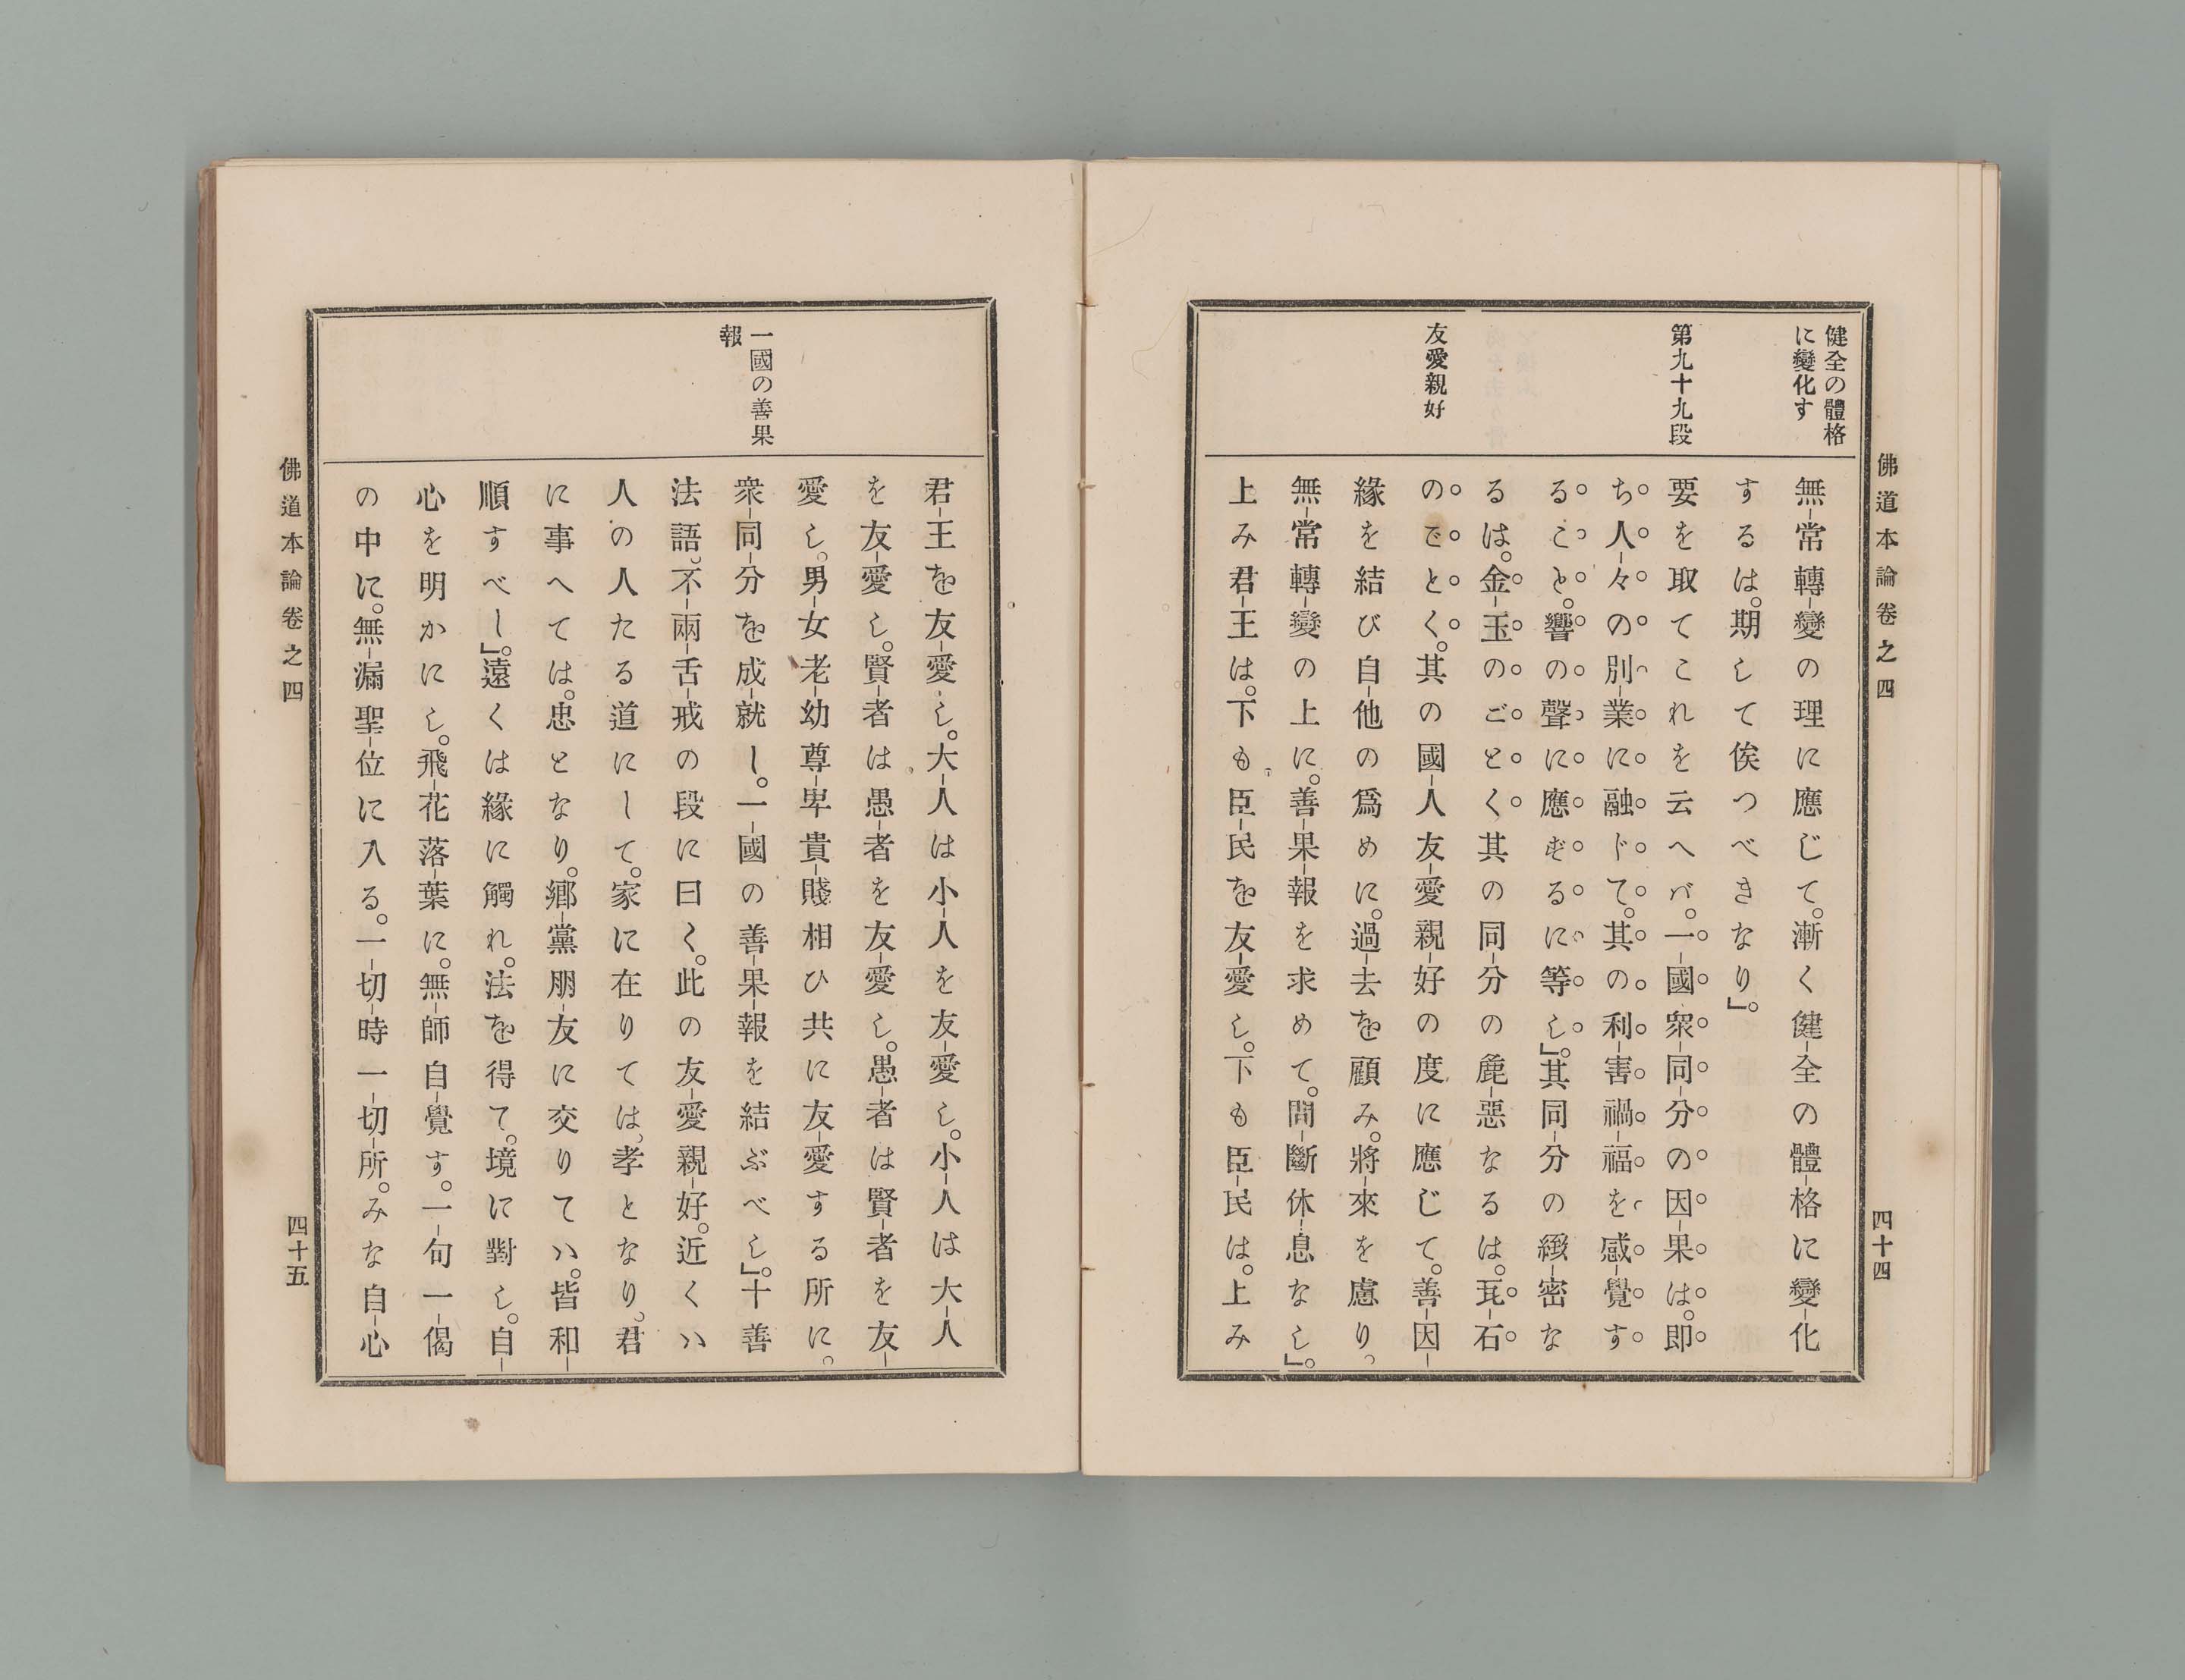 佛道本論卷之四
四十四
健全の體格
に變化す
第九十九段
友愛親好
無常轉變の理に應じて。漸く健全の體格に變化
するは。期して俟つべきなり」。
要を取てこれを云へバ。一國衆同分の因果は。即
ち人々の別業に融ドて。其の利害禍福を感覺す
ること。響の聲に應ずるに等し」。其同分の緻密な
るは。金玉のごとく其の同分の麁惡なるは。瓦石
のごとく。其の國人友愛親好の度に應じて。善因
緣を結び自他の爲めに。過去を顧み。將來を慮り。
無常轉變の上に。善果報を求めて。間斷休息なし」。
上み君王は。下も臣民を友愛し。下も臣民は。上み
一國の善果
報
君王を友愛し。大人は小人を友愛し。小人は大人
を友愛し。賢者は愚者を友愛し。愚者は賢者を友
愛し。男女老幼尊卑貴賤相ひ共に友愛する所に。
衆同分を成就し。一國の善果報を結ぶべし」。十善
法語。不兩舌戒の段に曰く。此の友愛親好。近くハ
人の人たる道にして。家に在りては、孝となり。君
に事へては。忠となり。鄉黨朋友に交りてハ。皆和
順すべし」。遠くは緣に觸れ。法を得て。境に對し。自
心を明かにし。飛花落葉に。無師自覺す。一句一偈
の中に。無漏聖位に入る。一切時一切所。みな自心
佛道本論卷之四
四十五